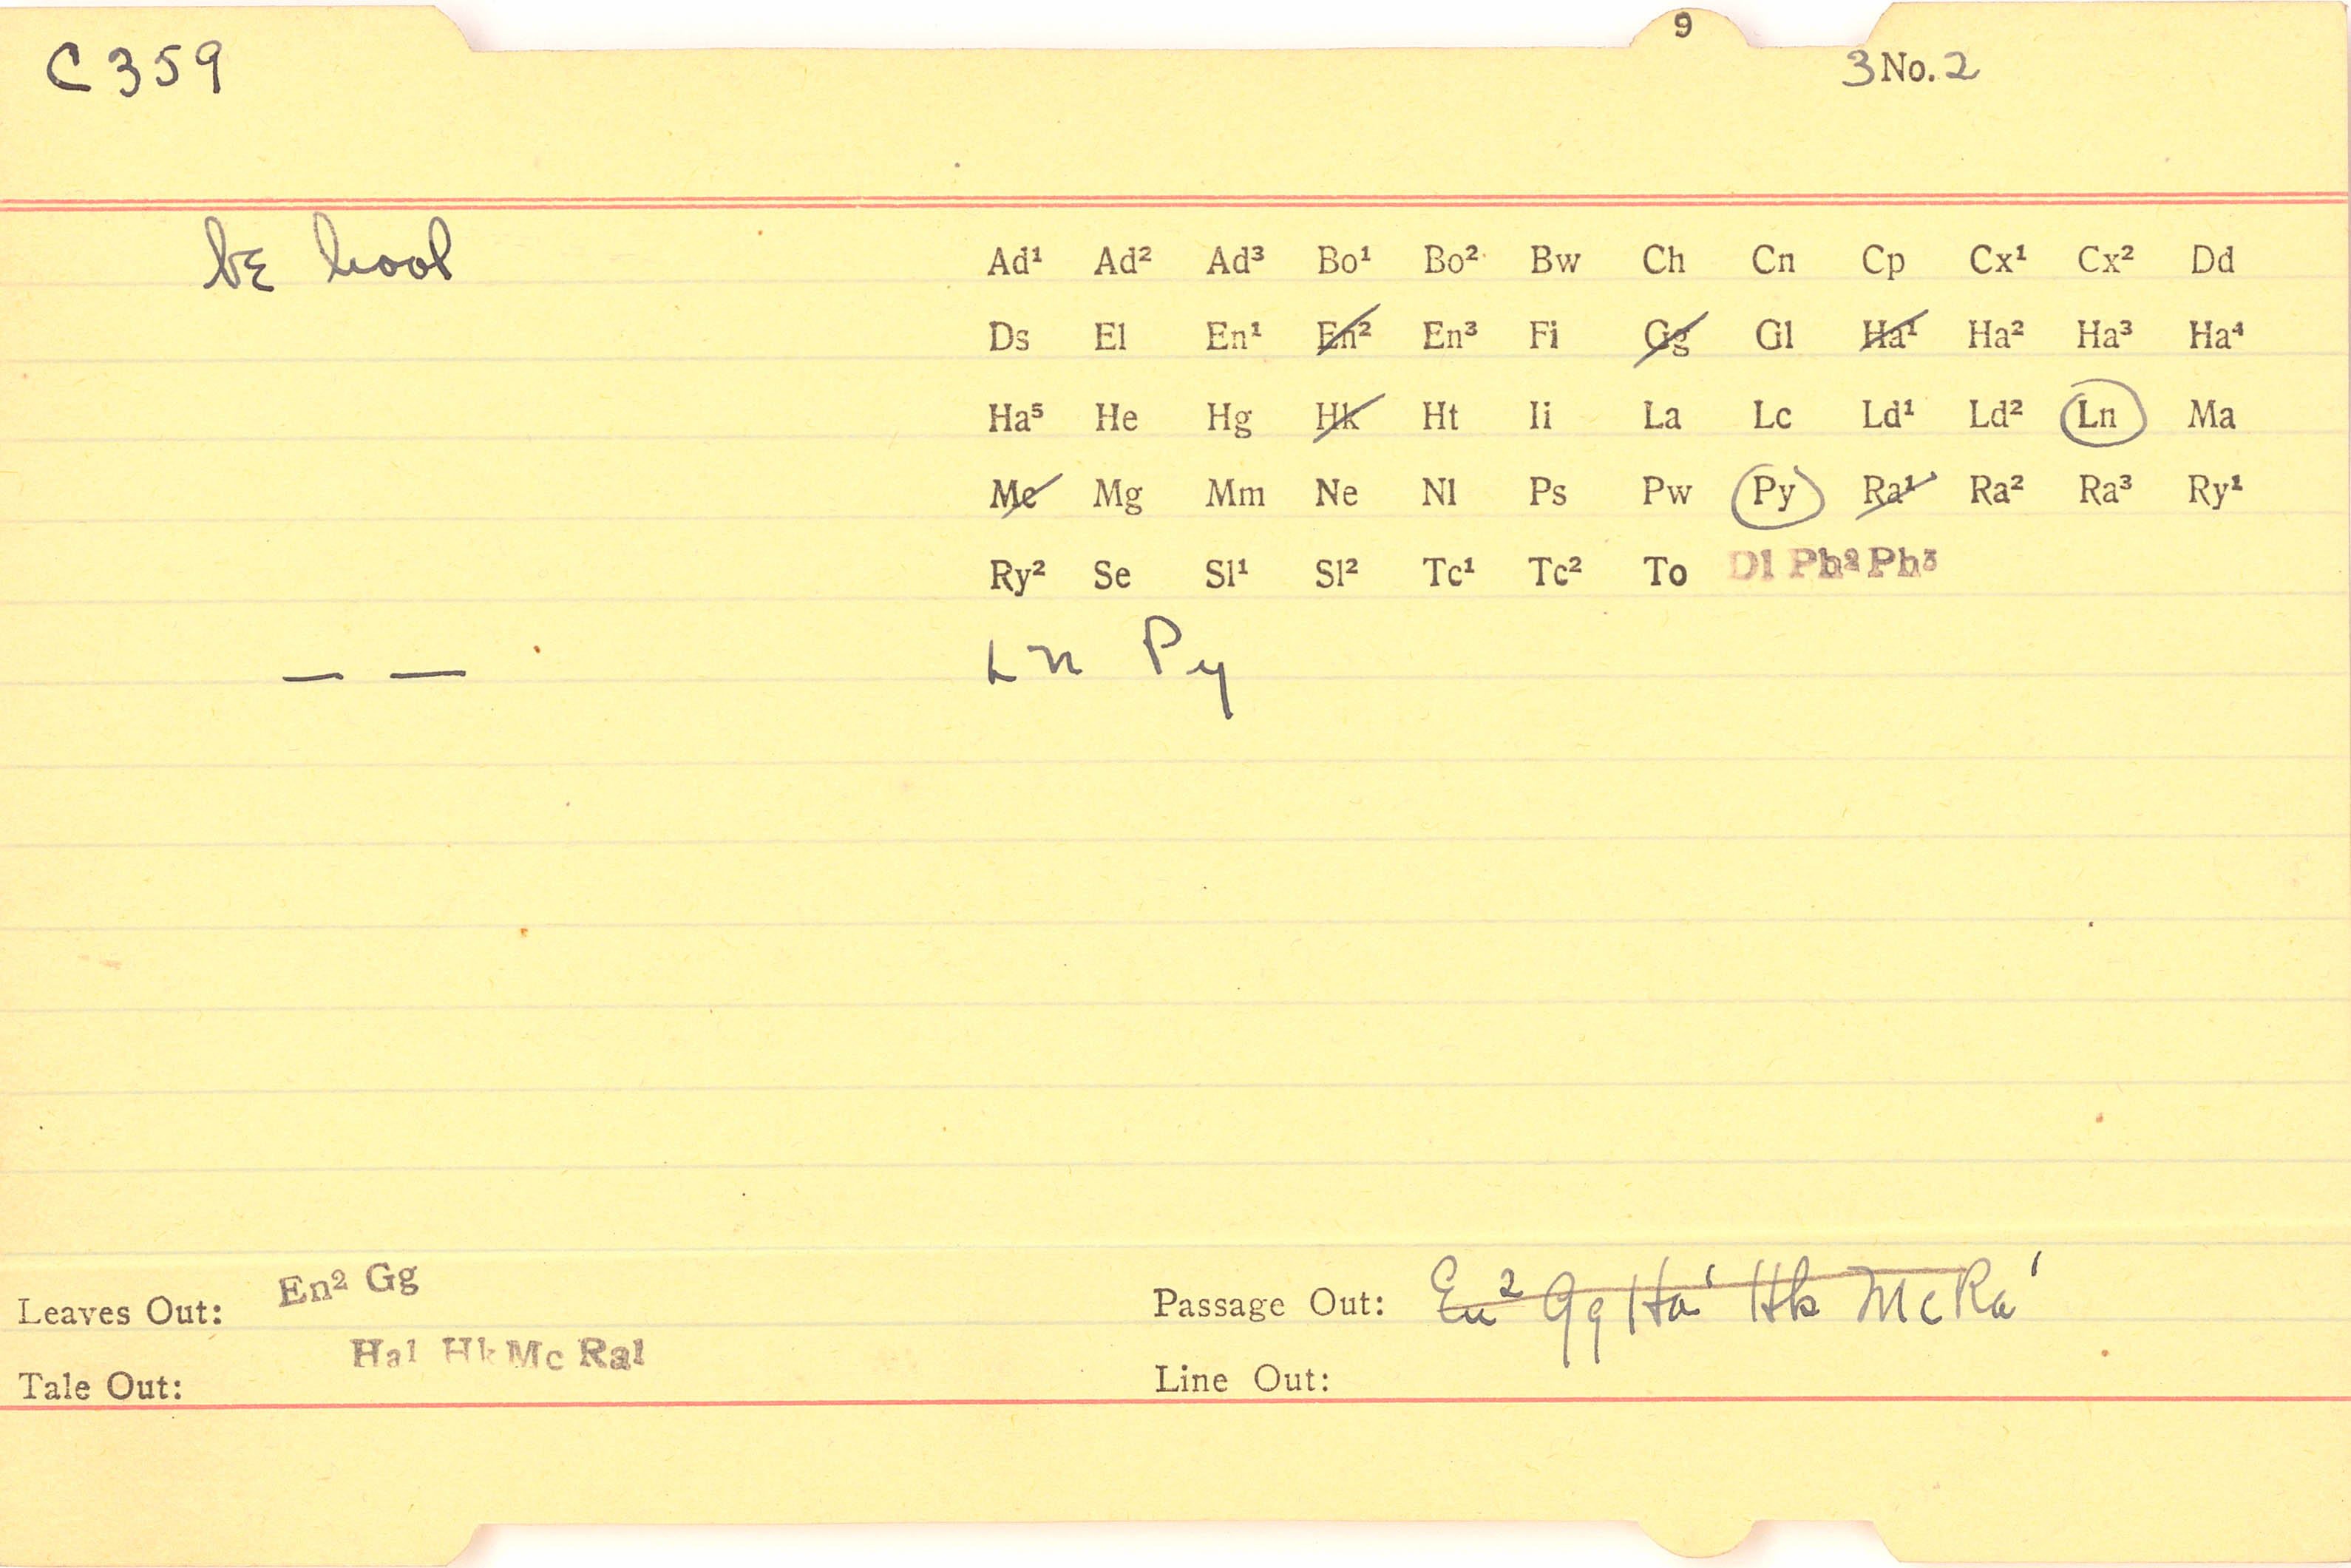 9
C 359
3 No. 2
be hool
Ad¹ Ad² Ad³ Bo¹ Bo² Bw Ch Cn Cp Cx¹ Cx² Dd
Ds El En¹ En² En³ Fi Gg Gl Ha¹ Ha² Ha³ Ha⁴
Ha⁵ He Hg Hk Ht Ii La Lc Ld¹ Ld² Ln Ma
Mc Mg Mm Ne Nl Ps Pw Py Ra¹ Ra² Ra³ Ry¹
Ry² Se Sl¹ Sl² Tc¹ Tc² To Dl Ph² Ph³
— — Ln Py
Leaves Out: En² Gg
Ha1 Hk Mc Ra1
Tale Out:
Passage Out: En² Gg Ha¹ Hk Mc Ra¹
Line Out: